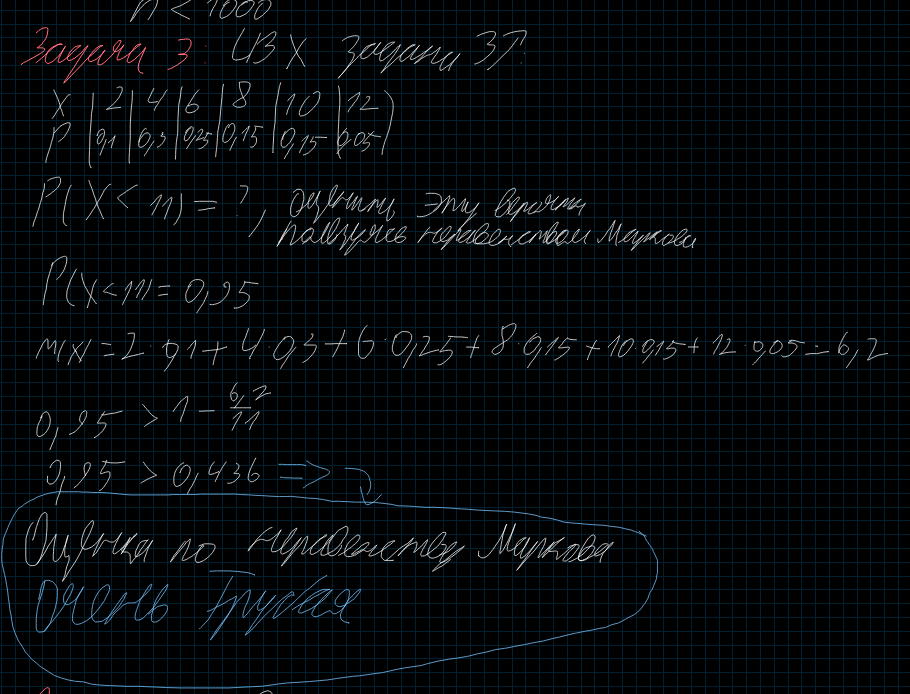 n < 1000
Задача 3: ДВ X задана ЗР:
X | 2 | 4 | 6 | 8 | 10 | 12
P | 0,1 | 0,3 | 0,25 | 0,15 | 0,15 | 0,05
P(X < 11) = ?, оценить эту вероятн
пользуясь неравенством Маркова
P(X<11) = 0,95
M(X) = 2·0,1 + 4·0,3 + 6·0,25 + 8·0,15 + 10·0,15 + 12·0,05 = 6,2
0,95 > 1 - 6,2/11
0,95 > 0,436 =>
Оценка по неравенству Маркова
Очень грубая